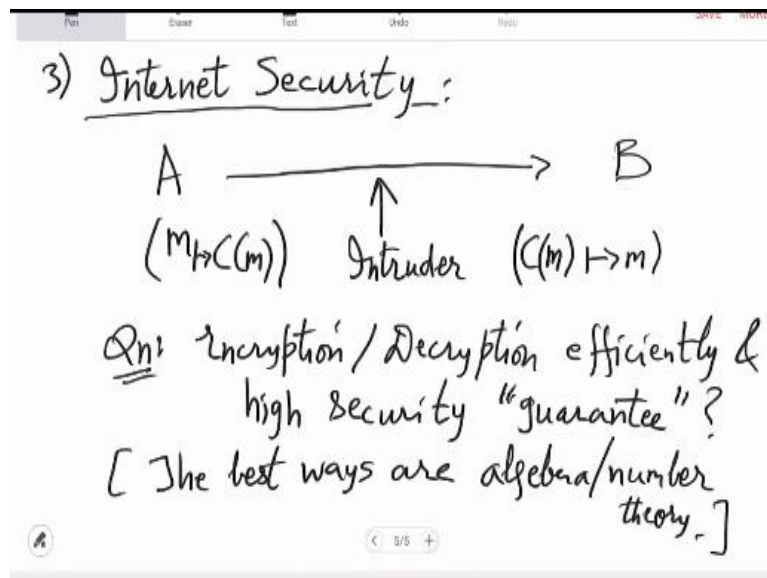 Pen Eraser Text Undo Redo SAVE MORE
3) Internet Security :
A → B
(m ↦ C(m)) Intruder (C(m) ↦ m)
Qn: Encryption / Decryption efficiently &
high security "guarantee" ?
[ The best ways are algebra/number
theory. ]
< 5/5 +